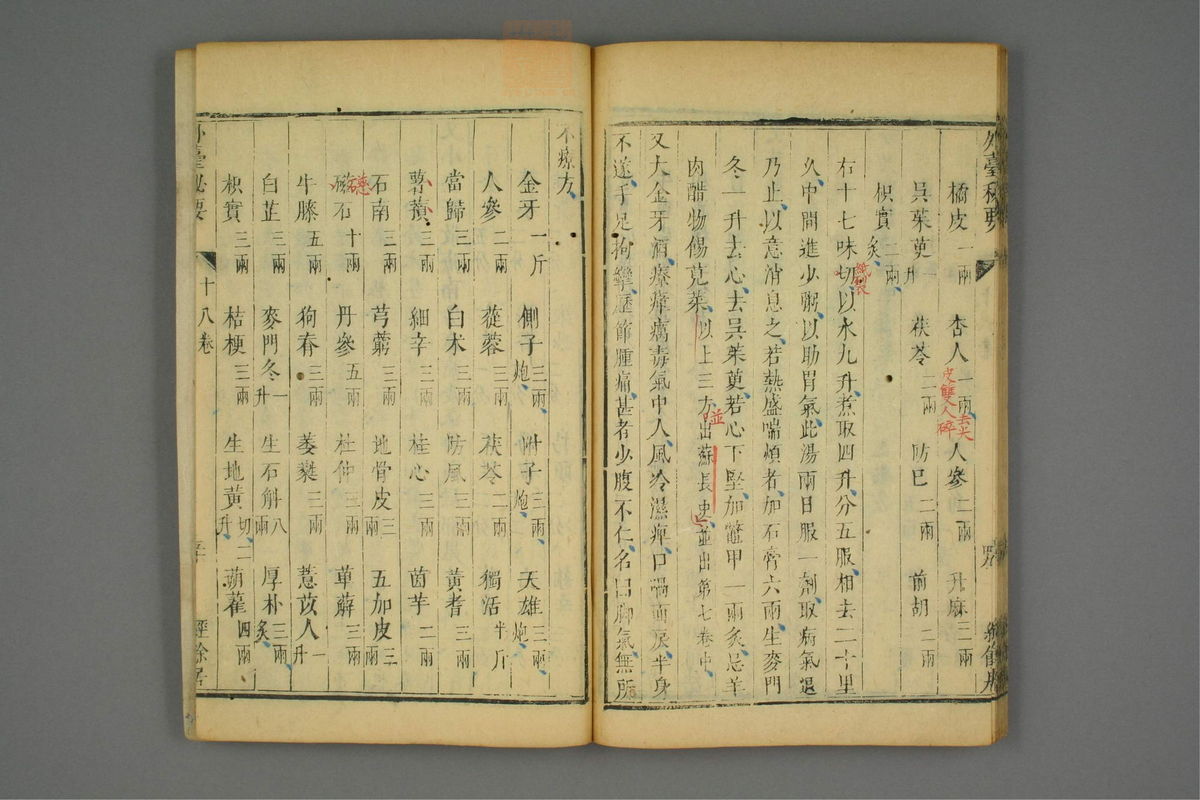 外臺秘要
橘皮一兩 杏人一兩 人參二兩 升麻三兩
去尖皮雙人碎
吳茱萸一升 茯苓二兩 防巳二兩 前胡二兩
枳實二兩炙
右十七味切以水九升煮取四升分五服相去二十里
久中間進少粥以助胃氣此湯兩日服一劑取病氣退
乃止以意消息之若熱盛喘煩者加石膏六兩生麥門
冬一升去心去吳茱萸若心下堅加鼈甲一兩炙忌羊
肉醋物傷莧菜以上三方出蘇長史並出第七卷中
並
又大金牙酒療瘴癘毒氣中人風冷濕痺口喎面戾半身
不遂手足拘攣歷節腫痛甚者少腹不仁名曰脚氣無所
不療方
金牙一斤 側子三兩炮 附子三兩炮 天雄三兩炮
人參二兩 蓯蓉三兩 茯苓二兩 獨活半斤
當歸三兩 白朮三兩 防風三兩 黃耆三兩
薯蕷三兩 細辛三兩 桂心三兩 茵芋二兩
石南三兩 芎藭三兩 地骨皮三兩 五加皮三兩
磁石十兩 丹參五兩 杜仲三兩 萆薢三兩
牛膝五兩 狗脊三兩 萎蕤三兩 薏苡人一升
白芷三兩 麥門冬一升 生石斛八兩 厚朴三兩炙
枳實三兩 桔梗三兩 生地黃切二升 蒴藋四兩
外臺秘要 十八卷 經餘居